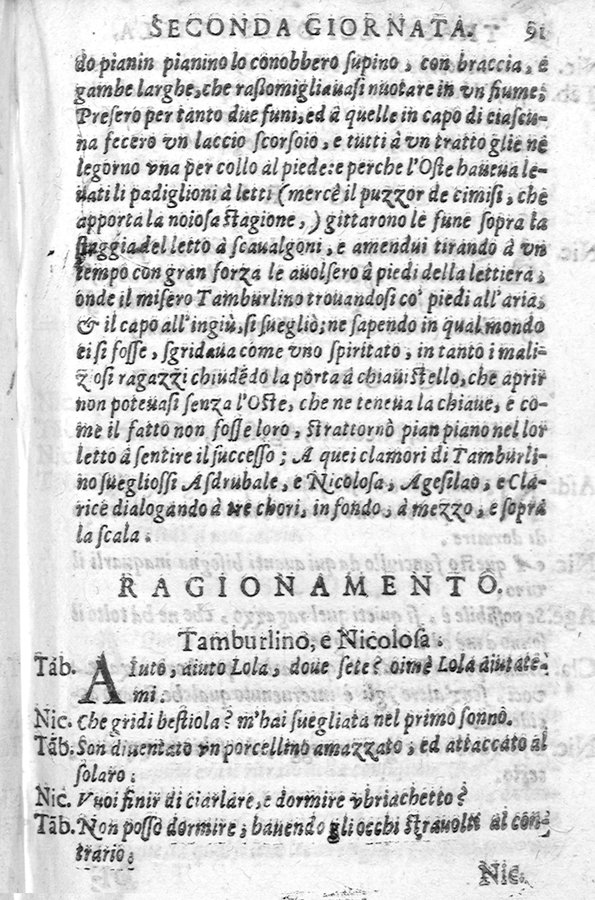 SECONDA GIORNATA. 91
do pianin pianino lo conobbero supino, con braccia, e
gambe larghe, che rassomigliauasi nuotare in vn fiume;
Presero per tanto due funi, ed à quelle in capo di ciascu-
na fecero vn laccio scorsoio, e tutti à vn tratto glie ne
legorno vna per collo al piede: e perche l'Oste haueua le-
uati li padiglioni à letti (mercè il puzzor de cimisi, che
apporta la noiosa stagione,) gittarono le fune sopra la
staggia del letto à scaualgoni, e amendui tirando à vn
tempo con gran forza le auolsero à piedi della lettiera,
onde il misero Tamburlino trouandosi co' piedi all'aria,
& il capo all'ingiù, si suegliò; ne sapendo in qual mondo
ei si fosse, sgridaua come vno spiritato, in tanto i mali-
ziosi ragazzi chiudēdo la porta à chiauistello, che aprir
non poteuasi senza l'Oste, che ne teneua la chiaue, e co-
me il fatto non fosse loro, strattornò pian piano nel lor
letto à sentire il successo; A quei clamori di Tamburli-
no suegliossi Asdrubale, e Nicolosa, Agesilao, e Cla-
rice dialogando à tre chori, in fondo, à mezzo, e sopra
la scala.
RAGIONAMENTO.
Tamburlino, e Nicolosa.
Tāb. AIuto, aiuto Lola, doue sete? oimè Lola aiutate-
mi.
Nic. Che gridi bestiola? m'hai suegliata nel primo sonno.
Tāb. Son diuentato vn porcellino amazzato, ed attaccato al
solaro.
Nic. Vuoi finir di ciarlare, e dormire vbriachetto?
Tāb. Non posso dormire, hauendo gli occhi strauolti al con-
trario.
Nic.